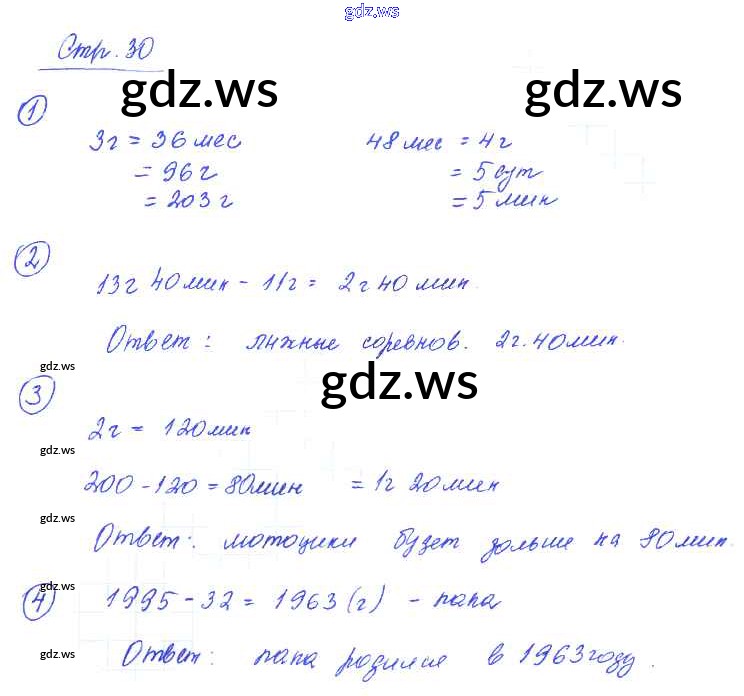 gdz.ws
Стр. 30
gdz.ws gdz.ws
1
3г = 36 мес 48 мес = 4г
= 96г = 5 сут
= 203г = 5 мин
2
13г 40мин - 11г = 2г 40 мин.
Ответ: лыжные соревнов. 2г. 40мин.
gdz.ws
gdz.ws
3
2г = 120 мин
gdz.ws
200 - 120 = 80мин = 1г 20 мин
gdz.ws
Ответ: мотоцикл будет дольше на 80 мин.
gdz.ws
4 1995 - 32 = 1963 (г) - папа
gdz.ws
Ответ: папа родился в 1963 году.